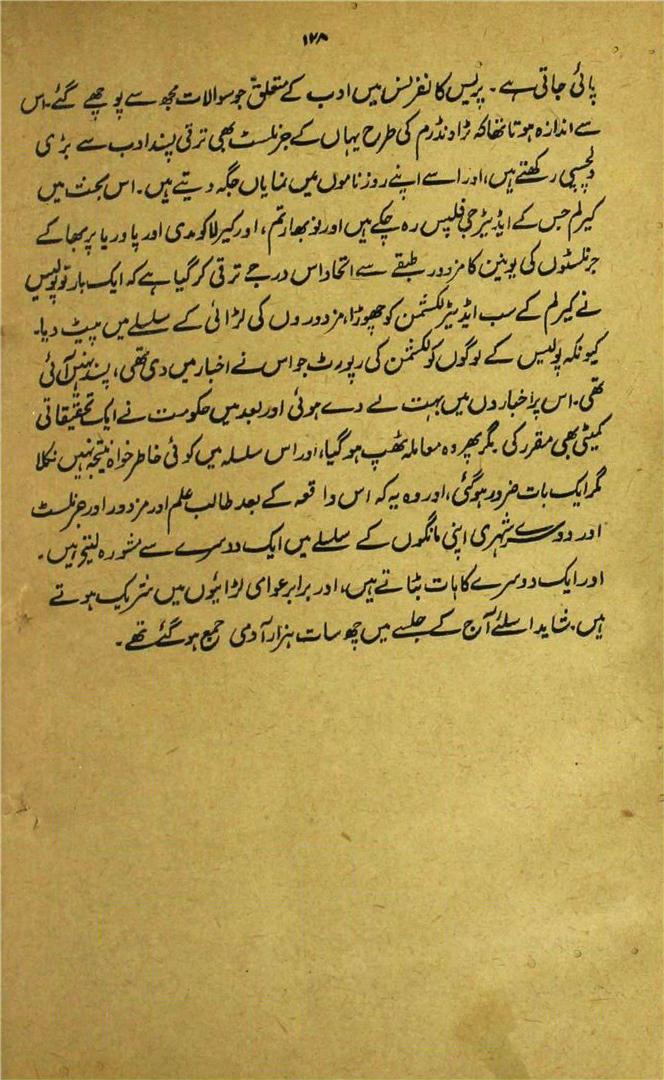 ۱۲۸
پائی جاتی ہے۔ پریس کانفرنس میں ادب کے متعلق جو سوالات مجھ سے پوچھے گئے۔ اس
سے اندازہ ہوتا تھا کہ ٹراونڈرم کی طرح یہاں کے جرنلسٹ بھی ترقی پسند ادب سے بڑی
دلچسپی رکھتے ہیں، اور اسے اپنے روزناموں میں نمایاں جگہ دیتے ہیں۔ اس بحث میں
کیرلم جس کے ایڈیٹر جی فلپس رہ چکے ہیں اور نو بھارتم، اور کیرلا کومدی اور پاور یا پربھا کے
جرنلسٹوں کی یونین کا مزدور طبقے سے اتحاد اس درجے ترقی کر گیا ہے کہ ایک بار تو پولیس
نے کیرلم کے سب ایڈیٹر لکشمن کو چھوڑا، مزدوروں کی لڑائی کے سلسلے میں پیٹ دیا۔
کیونکہ پولیس کے لوگوں کو لکشمن کی رپورٹ جو اس نے اخبار میں دی تھی، پسند نہیں آئی
تھی۔ اس پر اخباروں میں بہت لے دے ہوئی اور بعد میں حکومت نے ایک تحقیقاتی
کمیٹی بھی مقرر کی مگر پھر وہ معاملہ ٹھپ ہو گیا، اور اس سلسلہ میں کوئی خاطر خواہ نتیجہ نہیں نکلا
مگر ایک بات ضرور ہو گئی، اور وہ یہ کہ اس واقعہ کے بعد طالب علم اور مزدور اور جرنلسٹ
اور دوسرے شہری اپنی مانگوں کے سلسلے میں ایک دوسرے سے مشورہ لیتے ہیں۔
اور ایک دوسرے کا ہات بٹاتے ہیں، اور برابر عوامی لڑائیوں میں شریک ہوتے
ہیں۔ شاید اسلئے آج کے جلسے میں چھ سات ہزار آدمی جمع ہو گئے تھے۔